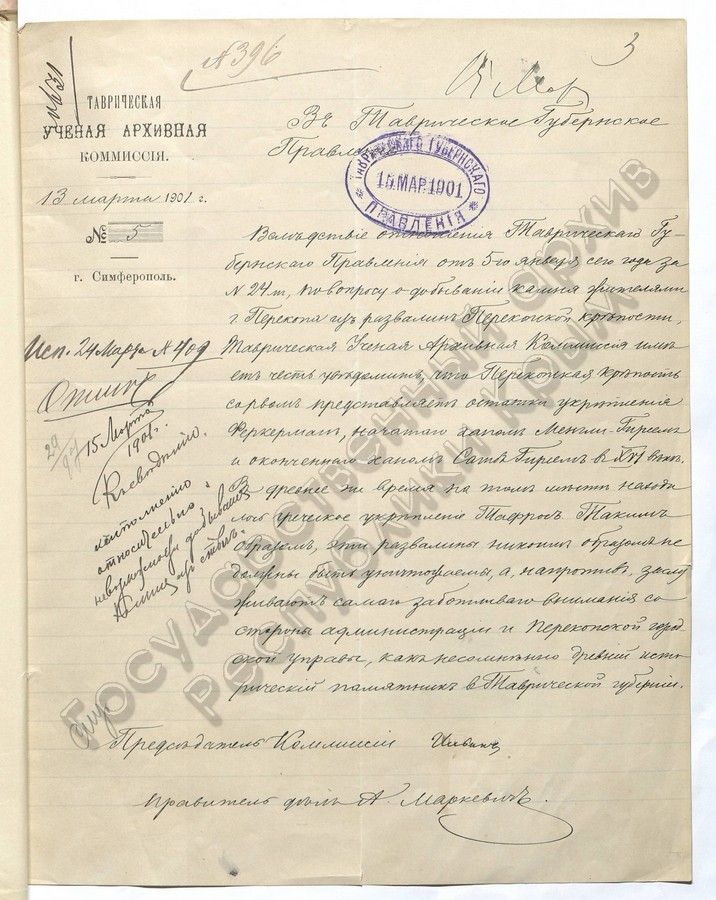 № 396
3
ТАВРИЧЕСКАЯ
УЧЕНАЯ АРХИВНАЯ
КОММИССІЯ.
13 марта 1901 г.
№ 5
г. Симферополь.
Въ Таврическое Губернское
Правле
ТАВРИЧЕСКАГО ГУБЕРНСКАГО
15. МАР. 1901
ПРАВЛЕНІЯ
Вслѣдствіе отношенія Таврическаго Гу-
бернскаго Правленія отъ 5го января сего года за
№ 24м, по вопросу о добываніи камня жителями
г. Перекопа изъ развалинъ Перекопской крѣпости,
Таврическая Ученая Архивная Коммиссія имѣ-
етъ честь увѣдомить, что Перекопская крѣпость
представляетъ остатки укрѣпленія
Феркерманъ, начатаго ханомъ Менгли-Гиреемъ
и оконченнаго ханомъ Гиреемъ в XVI вѣкѣ.
В древнее же время на томъ мѣстѣ находи
лось греческое укрѣпленіе Тафросъ. Такимъ
образомъ, эти развалины никоимъ образомъ не
должны быть уничтожаемы, а, напротив, заслу
живаютъ самаго заботливаго вниманія со
стороны администраціи и Перекопской город
ской управы, какъ несомнѣнно древній исто
рическій памятникъ в Таврической губерніи.
Исп. 24 Марта № 409
15 Марта
1901 г.
Къ свѣдѣнію
относительно
Предсѣдатель Коммиссіи
Правитель дѣлъ А. Маркевичъ.
Государственный архив
Республики Крым